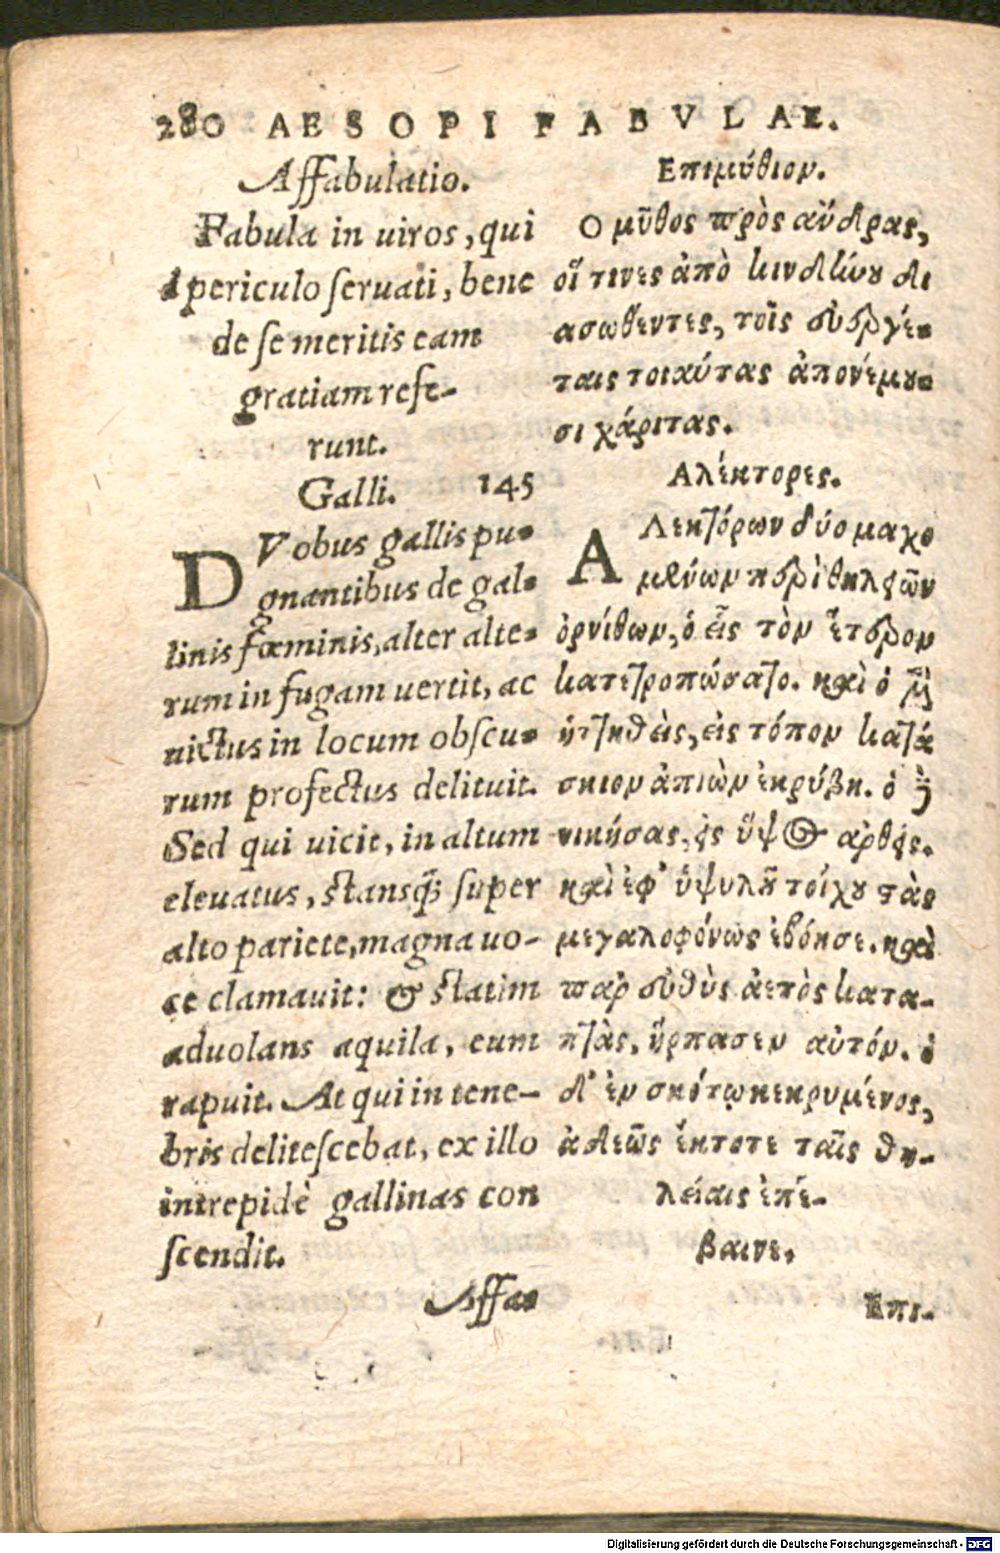 280 AESOPI FABVLAE.
Affabulatio.
Fabula in uiros, qui
à periculo ſeruati, bene
de ſe meritis eam
gratiam refe-
runt.
Galli. 145
DVobus gallis pu-
gnantibus de gal-
linis fœminis, alter alte-
rum in fugam uertit, ac
uictus in locum obſcu-
rum profectus delituit.
Sed qui uicit, in altum
eleuatus, ſtansq́; ſuper
alto pariete, magna uo-
ce clamauit: & ſtatim
aduolans aquila, eum
rapuit. At qui in tene-
bris deliteſcebat, ex illo
intrepidè gallinas con
ſcendit.
Affa-
Επιμύθιον.
Ο μῦθος πρὸς ἄνδρας,
οἵ τινες ἀπὸ κινδύνου δι
ασωθέντες, τοῖς εὐεργέ-
ταις τοιαύτας ἀπονέμου-
σι χάριτας.
Αλέκτορες.
ΑΛεκτόρων δύο μαχο
μένων περὶ θηλειῶν
ὀρνίθων, ὁ εἷς τὸν ἕτερον
κατετροπώσατο. καὶ ὁ μὲν
ἡττηθεὶς, εἰς τόπον κατά
σκιον ἀπιὼν ἐκρύβη. ὁ δὲ
νικήσας, εἰς ὕψος ἀρθεὶς.
καὶ ἐφ' ὑψυλοῦ τοίχου στὰς
μεγαλοφόνως ἐβόησε. καὶ
παρ εὐθὺς ἀετὸς κατα-
πτὰς, ἥρπασεν αὐτόν. ὁ
δ' ἐν σκότῳ κεκρυμένος,
ἀδεῶς ἔκτοτε ταῖς θη-
λείαις ἐπέ-
βαινε.
Επι-
Digitalisierung gefördert durch die Deutsche Forschungsgemeinschaft - DFG